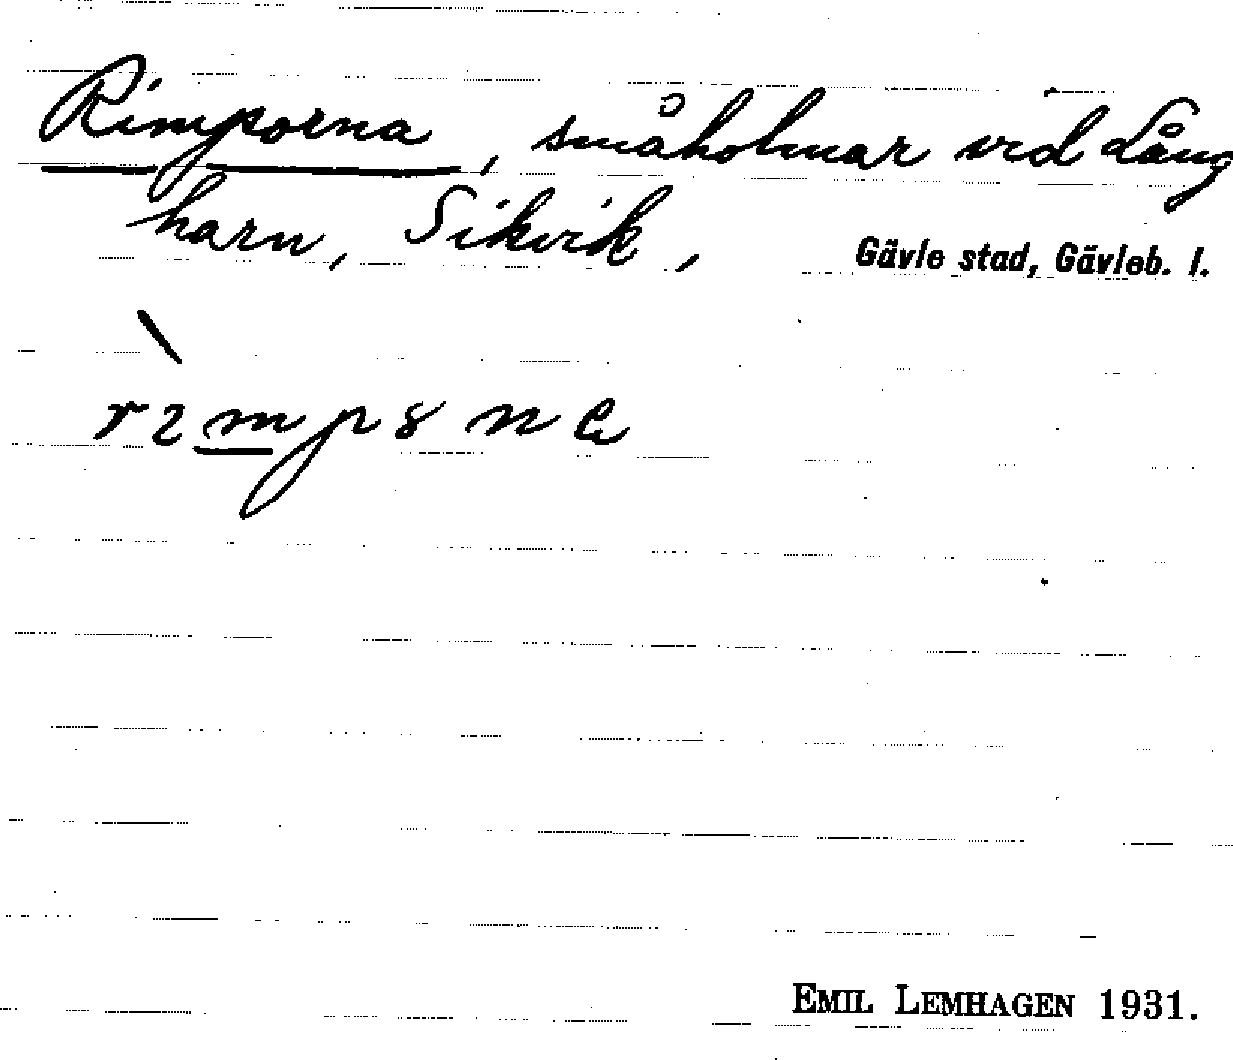 Rimporna, småholmar vid Lång
harn, Sikvik,
Gävle stad, Gävleb. l.
EMIL LEMHAGEN 1931.